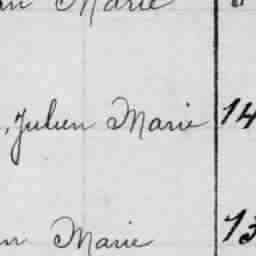 Marie
, Julien Marie 14
Marie 13